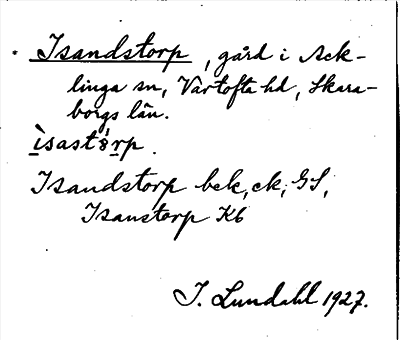 * Isandstorp, gård i Ack-
linga sn, Vartofta hd, Skara-
borgs län.
ìsastórp.
Isandstorp bek, ek, GS,
Isanstorp Kb
I. Lundahl 1927.